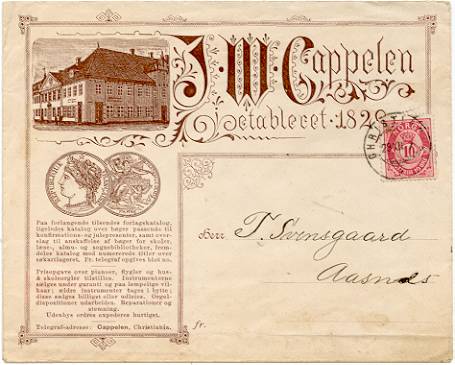 J. W. Cappelen
Etableret 1829
CHRISTI
NORGE
10
REPUBLIQUE
Paa forlangende tilsendes forlagskatalog,
ligeledes katalog over bøger passende til
konfirmations- og julepresenter, samt over-
slag til anskaffelse af bøger for skoler,
læse-, almu- og sognebibliotheker, frem-
deles katalog med numererede titler over
søkartlageret. Fr. telegraf opgives blot no.
Prisopgave over pianoer, flygler og hus-
& skoleorgler tilstilles. Instrumenterne
sælges under garanti og paa lempelige vil-
kaar; ældre instrumenter tages i bytte;
disse sælges billigt eller udleies. Orgel-
dispositioner udarbeides. Reparationer og
stemning.
Udenbys ordres expederes hurtigst.
Telegraf-adresse: Cappelen, Christiania.
Herr T. Svensgaard
Aasnes
fr.